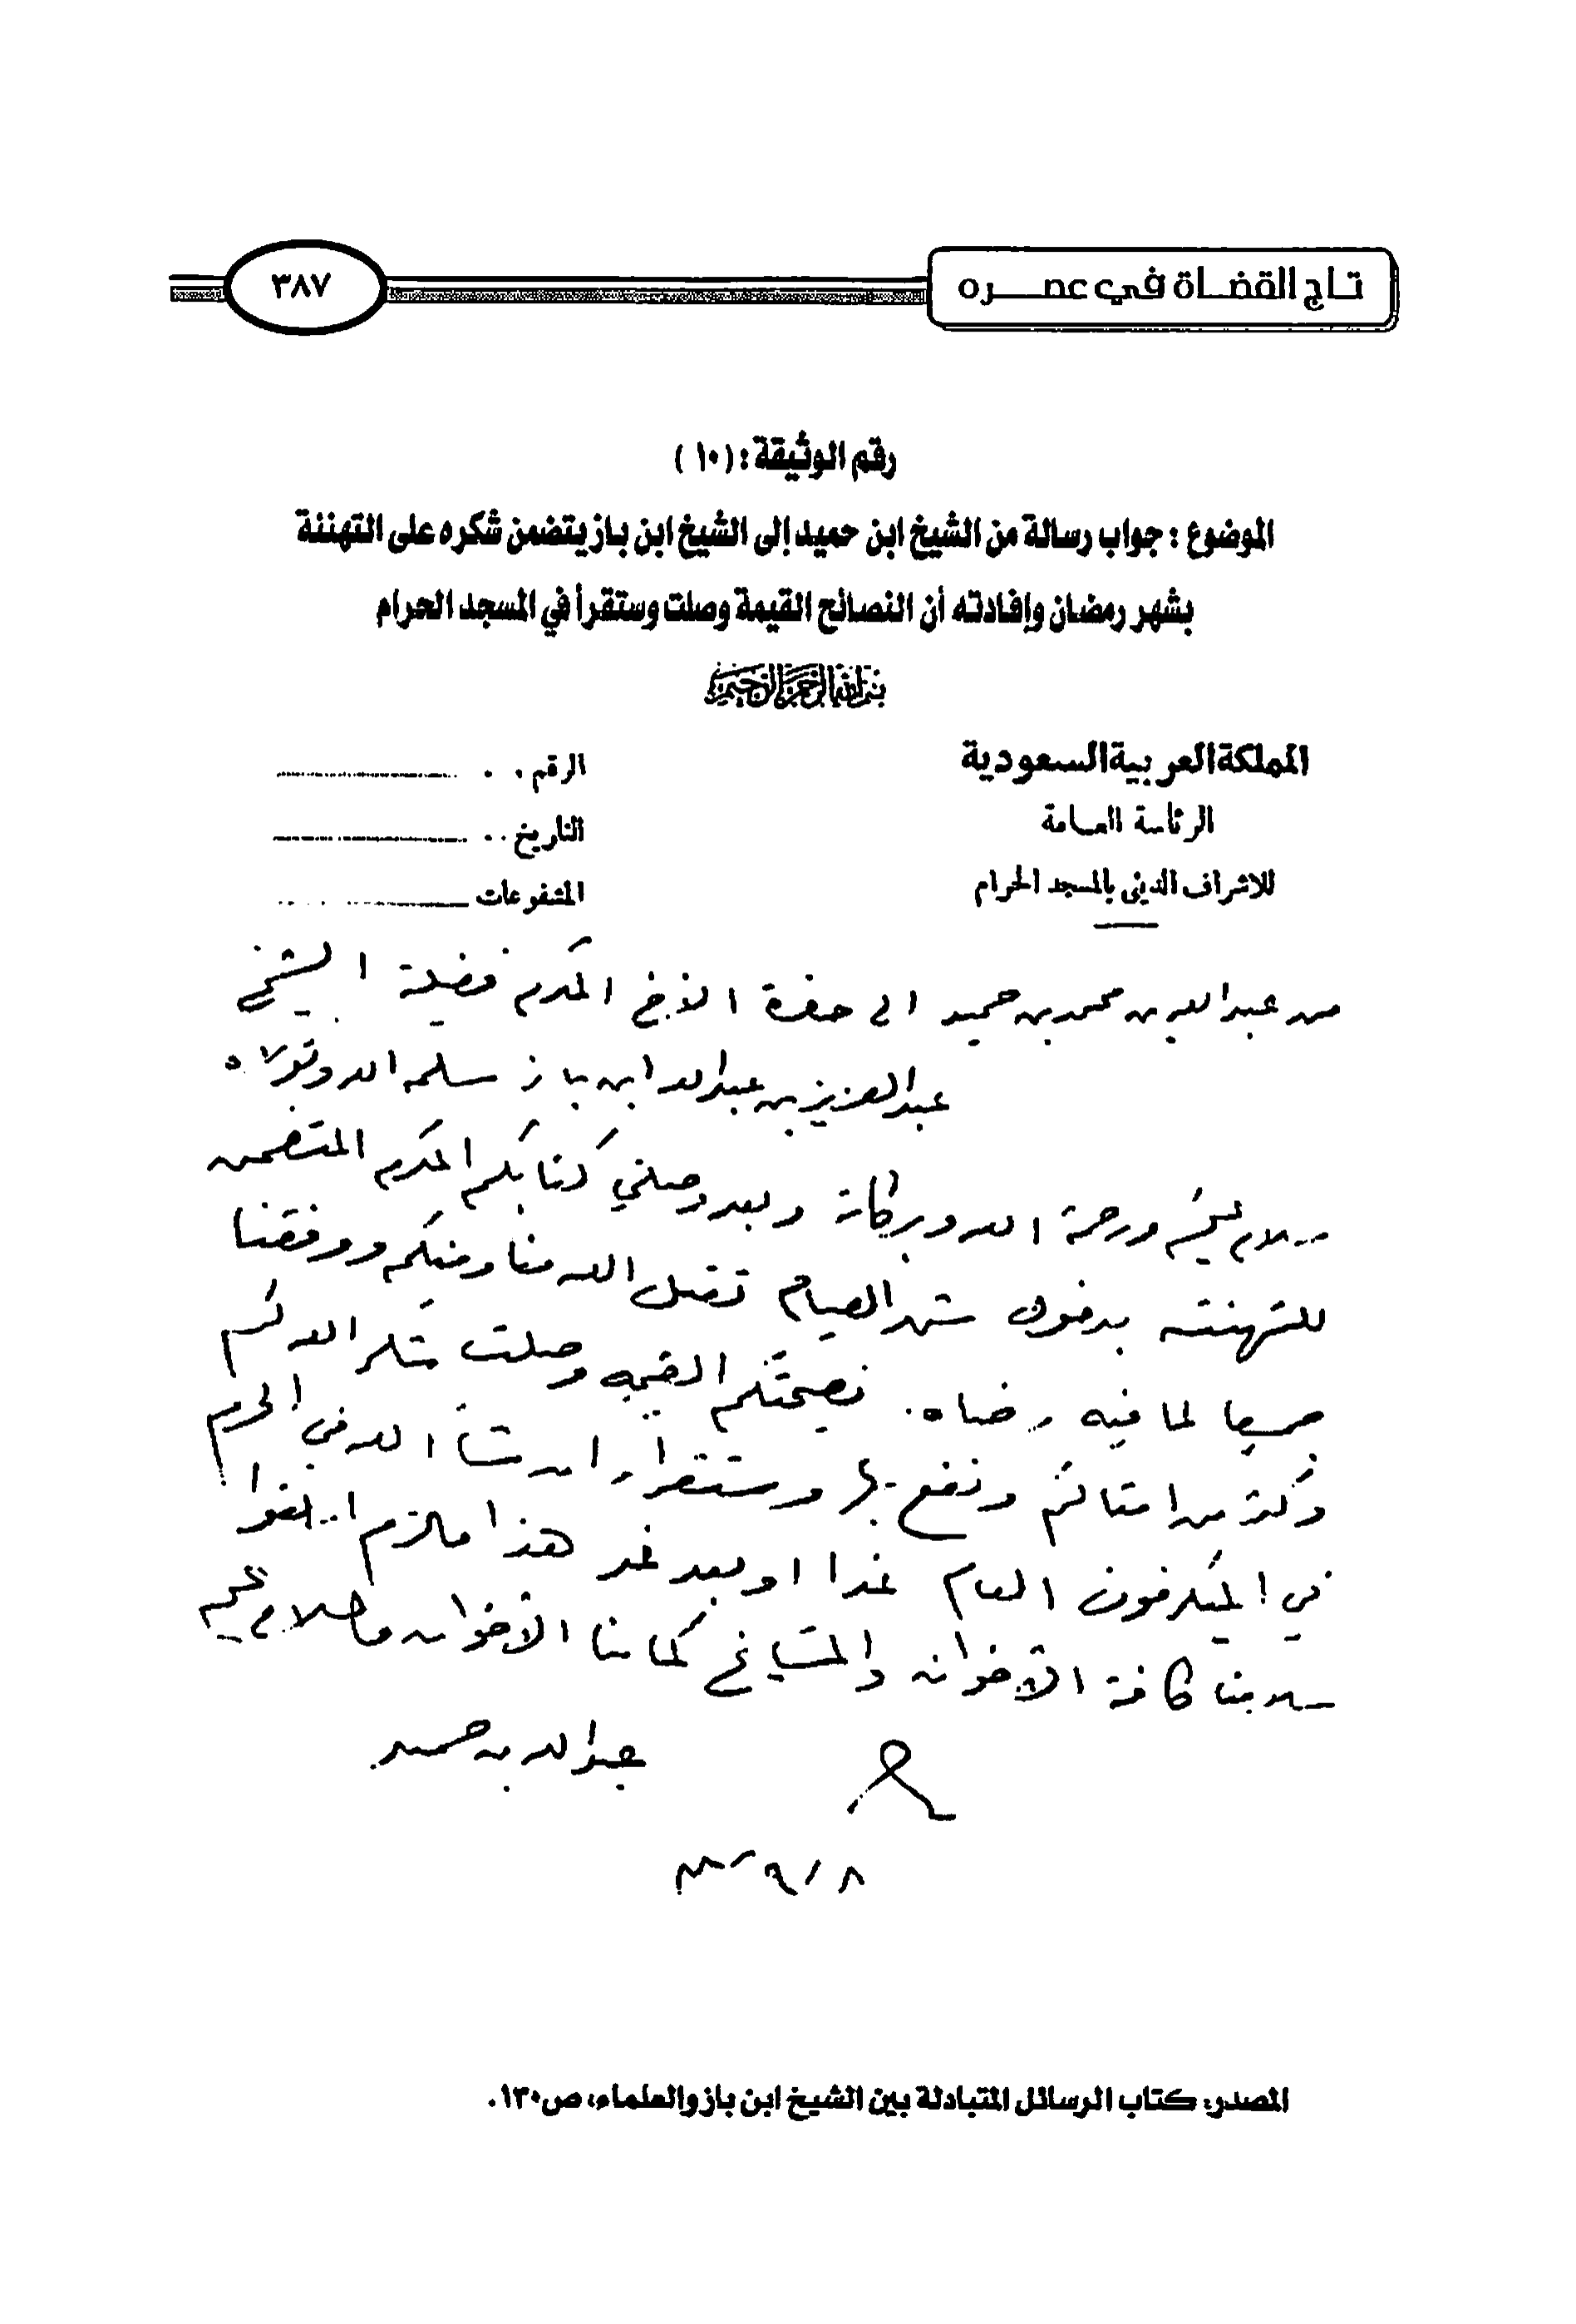 تاج القضاة في عصره
٣٨٧
رقم الوثيقة : (١٠)
الموضوع : جواب رسالة من الشيخ ابن حميد إلى الشيخ ابن باز يتضمن شكره على التهنئة
بشهر رمضان وإفادته أن النصائح القيمة وصلت وستقرأ في المسجد الحرام
بسم الله الرحمن الرحيم
المملكة العربية السعودية
الرئاسة العامة
للاشراف الديني بالمسجد الحرام
الرقم
التاريخ
المشفوعات
من عبدالله بن محمد بن حميد الى حضرة الأخ المكرم فضيلة الشيخ
عبدالعزيز بن عبدالله ابن باز سلمه الله وتولاه
سلام عليكم ورحمة الله وبركاته وبعد وصلني كتابكم المكرم المتضمن
للتهنئة بدخول شهر الصيام تقبل الله منا ومنكم ووفقنا
جميعا لما فيه رضاه. نصيحتكم القيمه وصلت شكر الله لكم
وكثر من امثالكم ونفع بها وستقرأ ان شاء الله في الحرم
في الميكرفون العام غدا او بعد غد هذا مالزم ابلغوا
سلامنا كافة الأخوان والمشايخ كما منا الأخوان والسلام عليكم
عبدالله بن حميد
٨ / ٩
المصدر: كتاب الرسائل المتبادلة بين الشيخ ابن باز والعلماء، ص١٣٠.